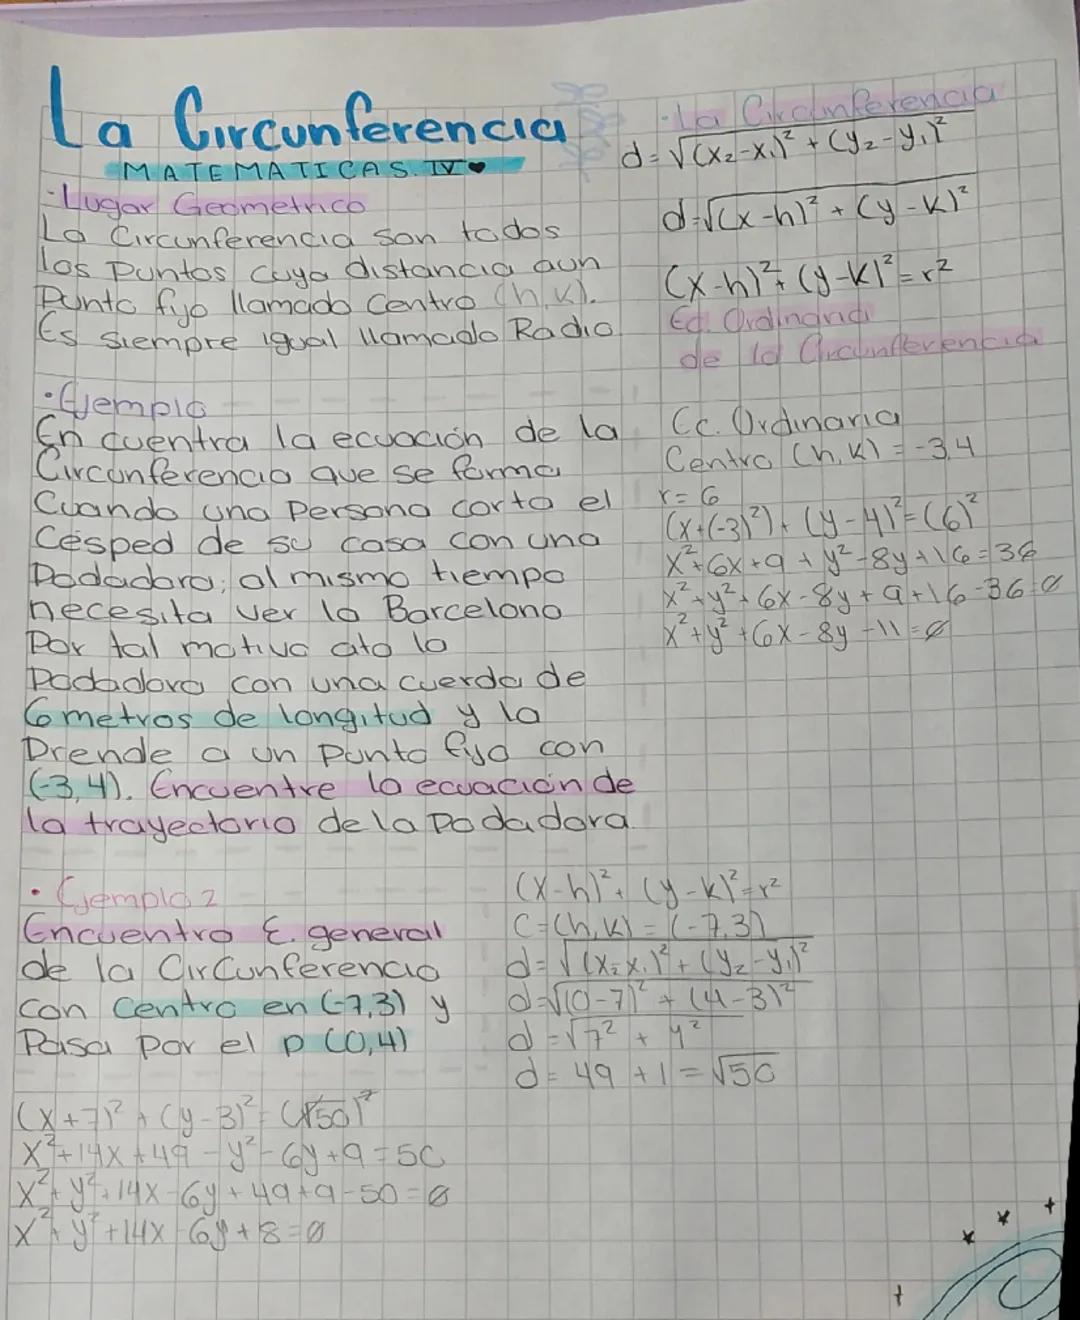 La Circunferencia
MATEMATICAS. IV ♥
· Lugar Geometrico
La Circunferencia son todos
los puntos cuya distancia aun
Punto fijo llamado Centro (h,k).
Es siempre igual llamado Radio
· La Circunferencia
d=√(x₂-x₁)² + (y₂-y₁)²
d=√(x-h)² + (y-k)²
(x-h)² + (y-k)² = r²
Ec. Ordinaria
de la Circunferencia
· Ejemplo
En cuentra la ecuación de la
Circunferencia que se forma
Cuando una Persona corta el
Césped de su casa con una
Podadora; al mismo tiempo
necesita ver la Barcelona
Por tal motivo ata la
Podadora con una cuerda de
6 metros de longitud y la
Prende a un punto fijo con
(-3,4). Encuentre la ecuación de
la trayectoria de la podadora.
Ec. Ordinaria
Centro (h,k) = -3,4
r=6
(x+(-3)²)+(y-4)²=(6)²
x²+6x+9+y²-8y+16=36
x²+y²+6x-8y+9+16-36=0
x²+y²+6x-8y-11=0
· Ejemplo 2
Encuentro E. general
de la Circunferencia
con Centro en (-7,3) y
Pasa por el p (0,4)
(x-h)²+(y-k)²=r²
C=(h,k)=(-7,3)
d=√(x₂x₁)²+(y₂-y₁)²
d=√(0-7)²+(4-3)²
d=√7² + y²
d= 49 +1 = √50
(x+7)²+(y-3)²=(√50)²
x²+14x+49-y²-6y+9=50
x²+y²+14x-6y+49+9-50=0
x²+y²+14x-6y+8=0